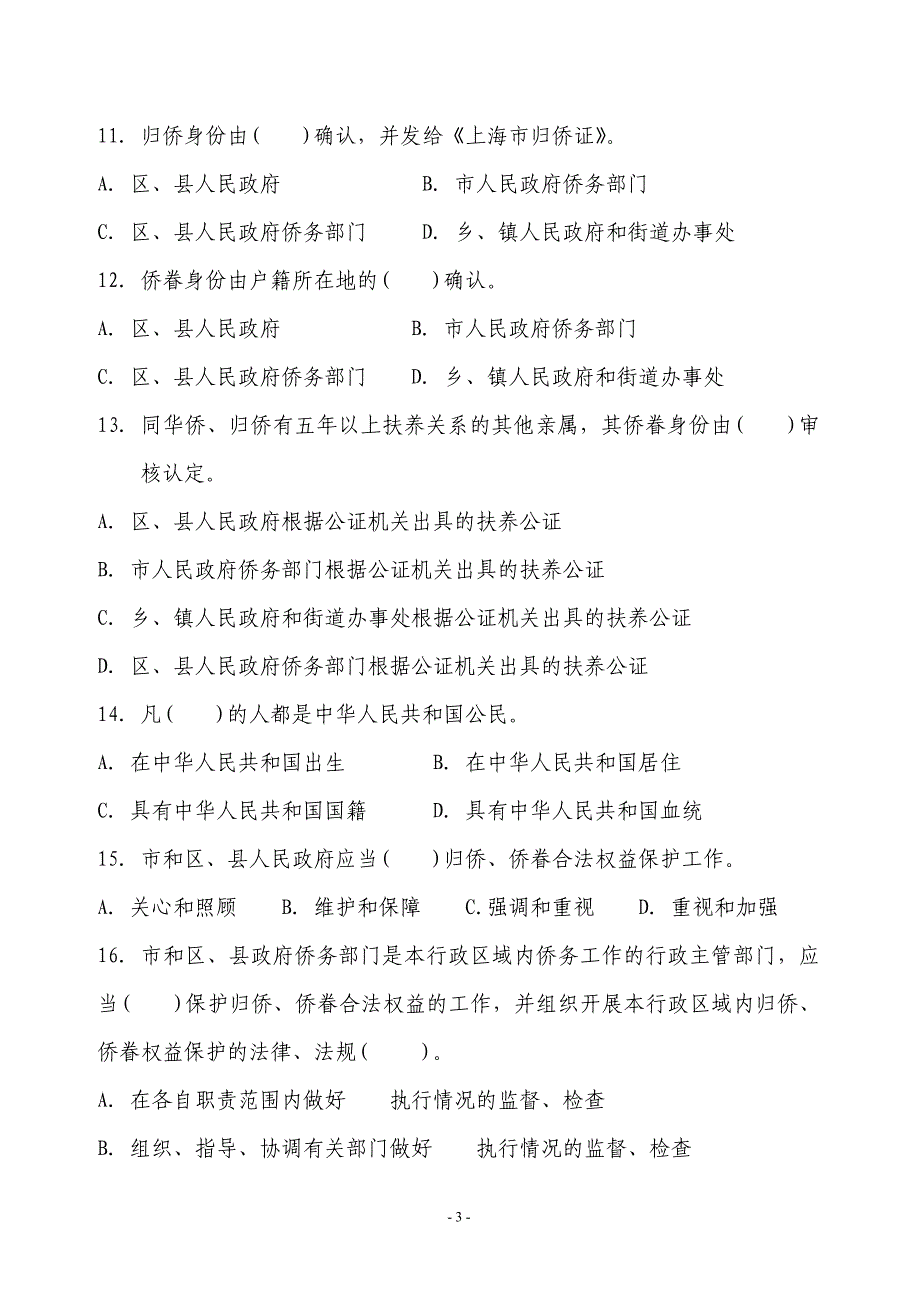 11. 归侨身份由(    )确认，并发给《上海市归侨证》。
A. 区、县人民政府    B. 市人民政府侨务部门
C. 区、县人民政府侨务部门    D. 乡、镇人民政府和街道办事处
12. 侨眷身份由户籍所在地的(    )确认。
A. 区、县人民政府    B. 市人民政府侨务部门
C. 区、县人民政府侨务部门    D. 乡、镇人民政府和街道办事处
13. 同华侨、归侨有五年以上扶养关系的其他亲属，其侨眷身份由(    )审
核认定。
A. 区、县人民政府根据公证机关出具的扶养公证
B. 市人民政府侨务部门根据公证机关出具的扶养公证
C. 乡、镇人民政府和街道办事处根据公证机关出具的扶养公证
D. 区、县人民政府侨务部门根据公证机关出具的扶养公证
14. 凡(    )的人都是中华人民共和国公民。
A. 在中华人民共和国出生    B. 在中华人民共和国居住
C. 具有中华人民共和国国籍    D. 具有中华人民共和国血统
15. 市和区、县人民政府应当(    )归侨、侨眷合法权益保护工作。
A. 关心和照顾    B. 维护和保障    C.强调和重视    D. 重视和加强
16. 市和区、县政府侨务部门是本行政区域内侨务工作的行政主管部门，应
当(    )保护归侨、侨眷合法权益的工作，并组织开展本行政区域内归侨、
侨眷权益保护的法律、法规(    )。
A. 在各自职责范围内做好    执行情况的监督、检查
B. 组织、指导、协调有关部门做好    执行情况的监督、检查
- 3 -